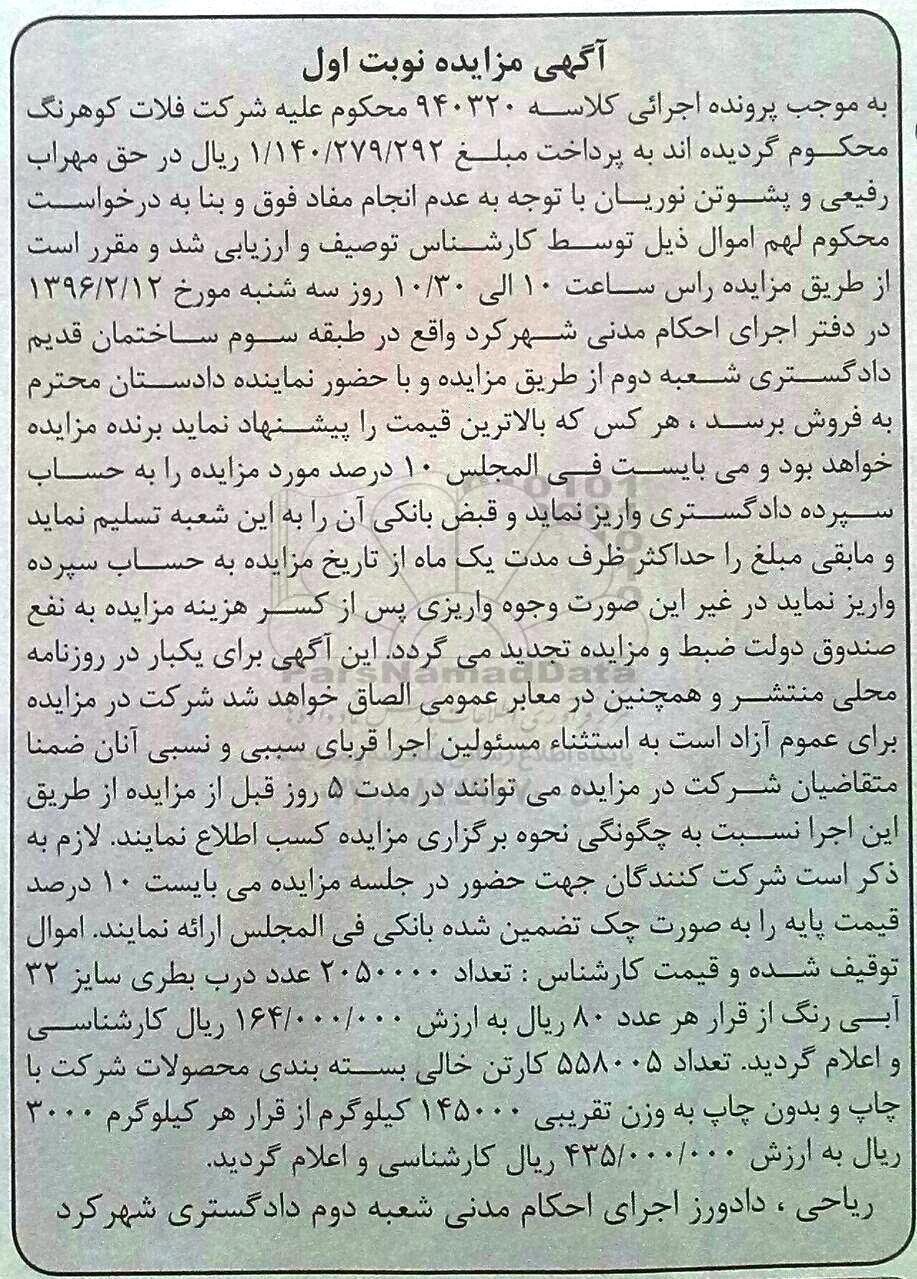 آگهی مزایده نوبت اول
به موجب پرونده اجرائی کلاسه ۹۴۰۳۲۰ محکوم علیه شرکت فلات کوهرنگ
محکوم گردیده اند به پرداخت مبلغ ۱/۱۴۰/۲۷۹/۲۹۲ ریال در حق مهراب
رفیعی و پشوتن نوریان با توجه به عدم انجام مفاد فوق و بنا به درخواست
محکوم لهم اموال ذیل توسط کارشناس توصیف و ارزیابی شد و مقرر است
از طریق مزایده راس ساعت ۱۰ الی ۱۰/۳۰ روز سه شنبه مورخ ۱۳۹۶/۲/۱۲
در دفتر اجرای احکام مدنی شهرکرد واقع در طبقه سوم ساختمان قدیم
دادگستری شعبه دوم از طریق مزایده و با حضور نماینده دادستان محترم
به فروش برسد ، هر کس که بالاترین قیمت را پیشنهاد نماید برنده مزایده
خواهد بود و می بایست فی المجلس ۱۰ درصد مورد مزایده را به حساب
سپرده دادگستری واریز نماید و قبض بانکی آن را به این شعبه تسلیم نماید
و مابقی مبلغ را حداکثر ظرف مدت یک ماه از تاریخ مزایده به حساب سپرده
واریز نماید در غیر این صورت وجوه واریزی پس از کسر هزینه مزایده به نفع
صندوق دولت ضبط و مزایده تجدید می گردد. این آگهی برای یکبار در روزنامه
ParsNamadData
محلی منتشر و همچنین در معابر عمومی الصاق خواهد شد شرکت در مزایده
برای عموم آزاد است به استثناء مسئولین اجرا قربای سببی و نسبی آنان ضمنا
متقاضیان شرکت در مزایده می توانند در مدت ۵ روز قبل از مزایده از طریق
این اجرا نسبت به چگونگی نحوه برگزاری مزایده کسب اطلاع نمایند. لازم به
ذکر است شرکت کنندگان جهت حضور در جلسه مزایده می بایست ۱۰ درصد
قیمت پایه را به صورت چک تضمین شده بانکی فی المجلس ارائه نمایند. اموال
توقیف شده و قیمت کارشناس : تعداد ۲۰۵۰۰۰۰ عدد درب بطری سایز ۳۲
آبی رنگ از قرار هر عدد ۸۰ ریال به ارزش ۱۶۴/۰۰۰/۰۰۰ ریال کارشناسی
و اعلام گردید. تعداد ۵۵۸۰۰۵ کارتن خالی بسته بندی محصولات شرکت با
چاپ و بدون چاپ به وزن تقریبی ۱۴۵۰۰۰ کیلوگرم از قرار هر کیلوگرم ۳۰۰۰
ریال به ارزش ۴۳۵/۰۰۰/۰۰۰ ریال کارشناسی و اعلام گردید.
ریاحی ، دادورز اجرای احکام مدنی شعبه دوم دادگستری شهرکرد